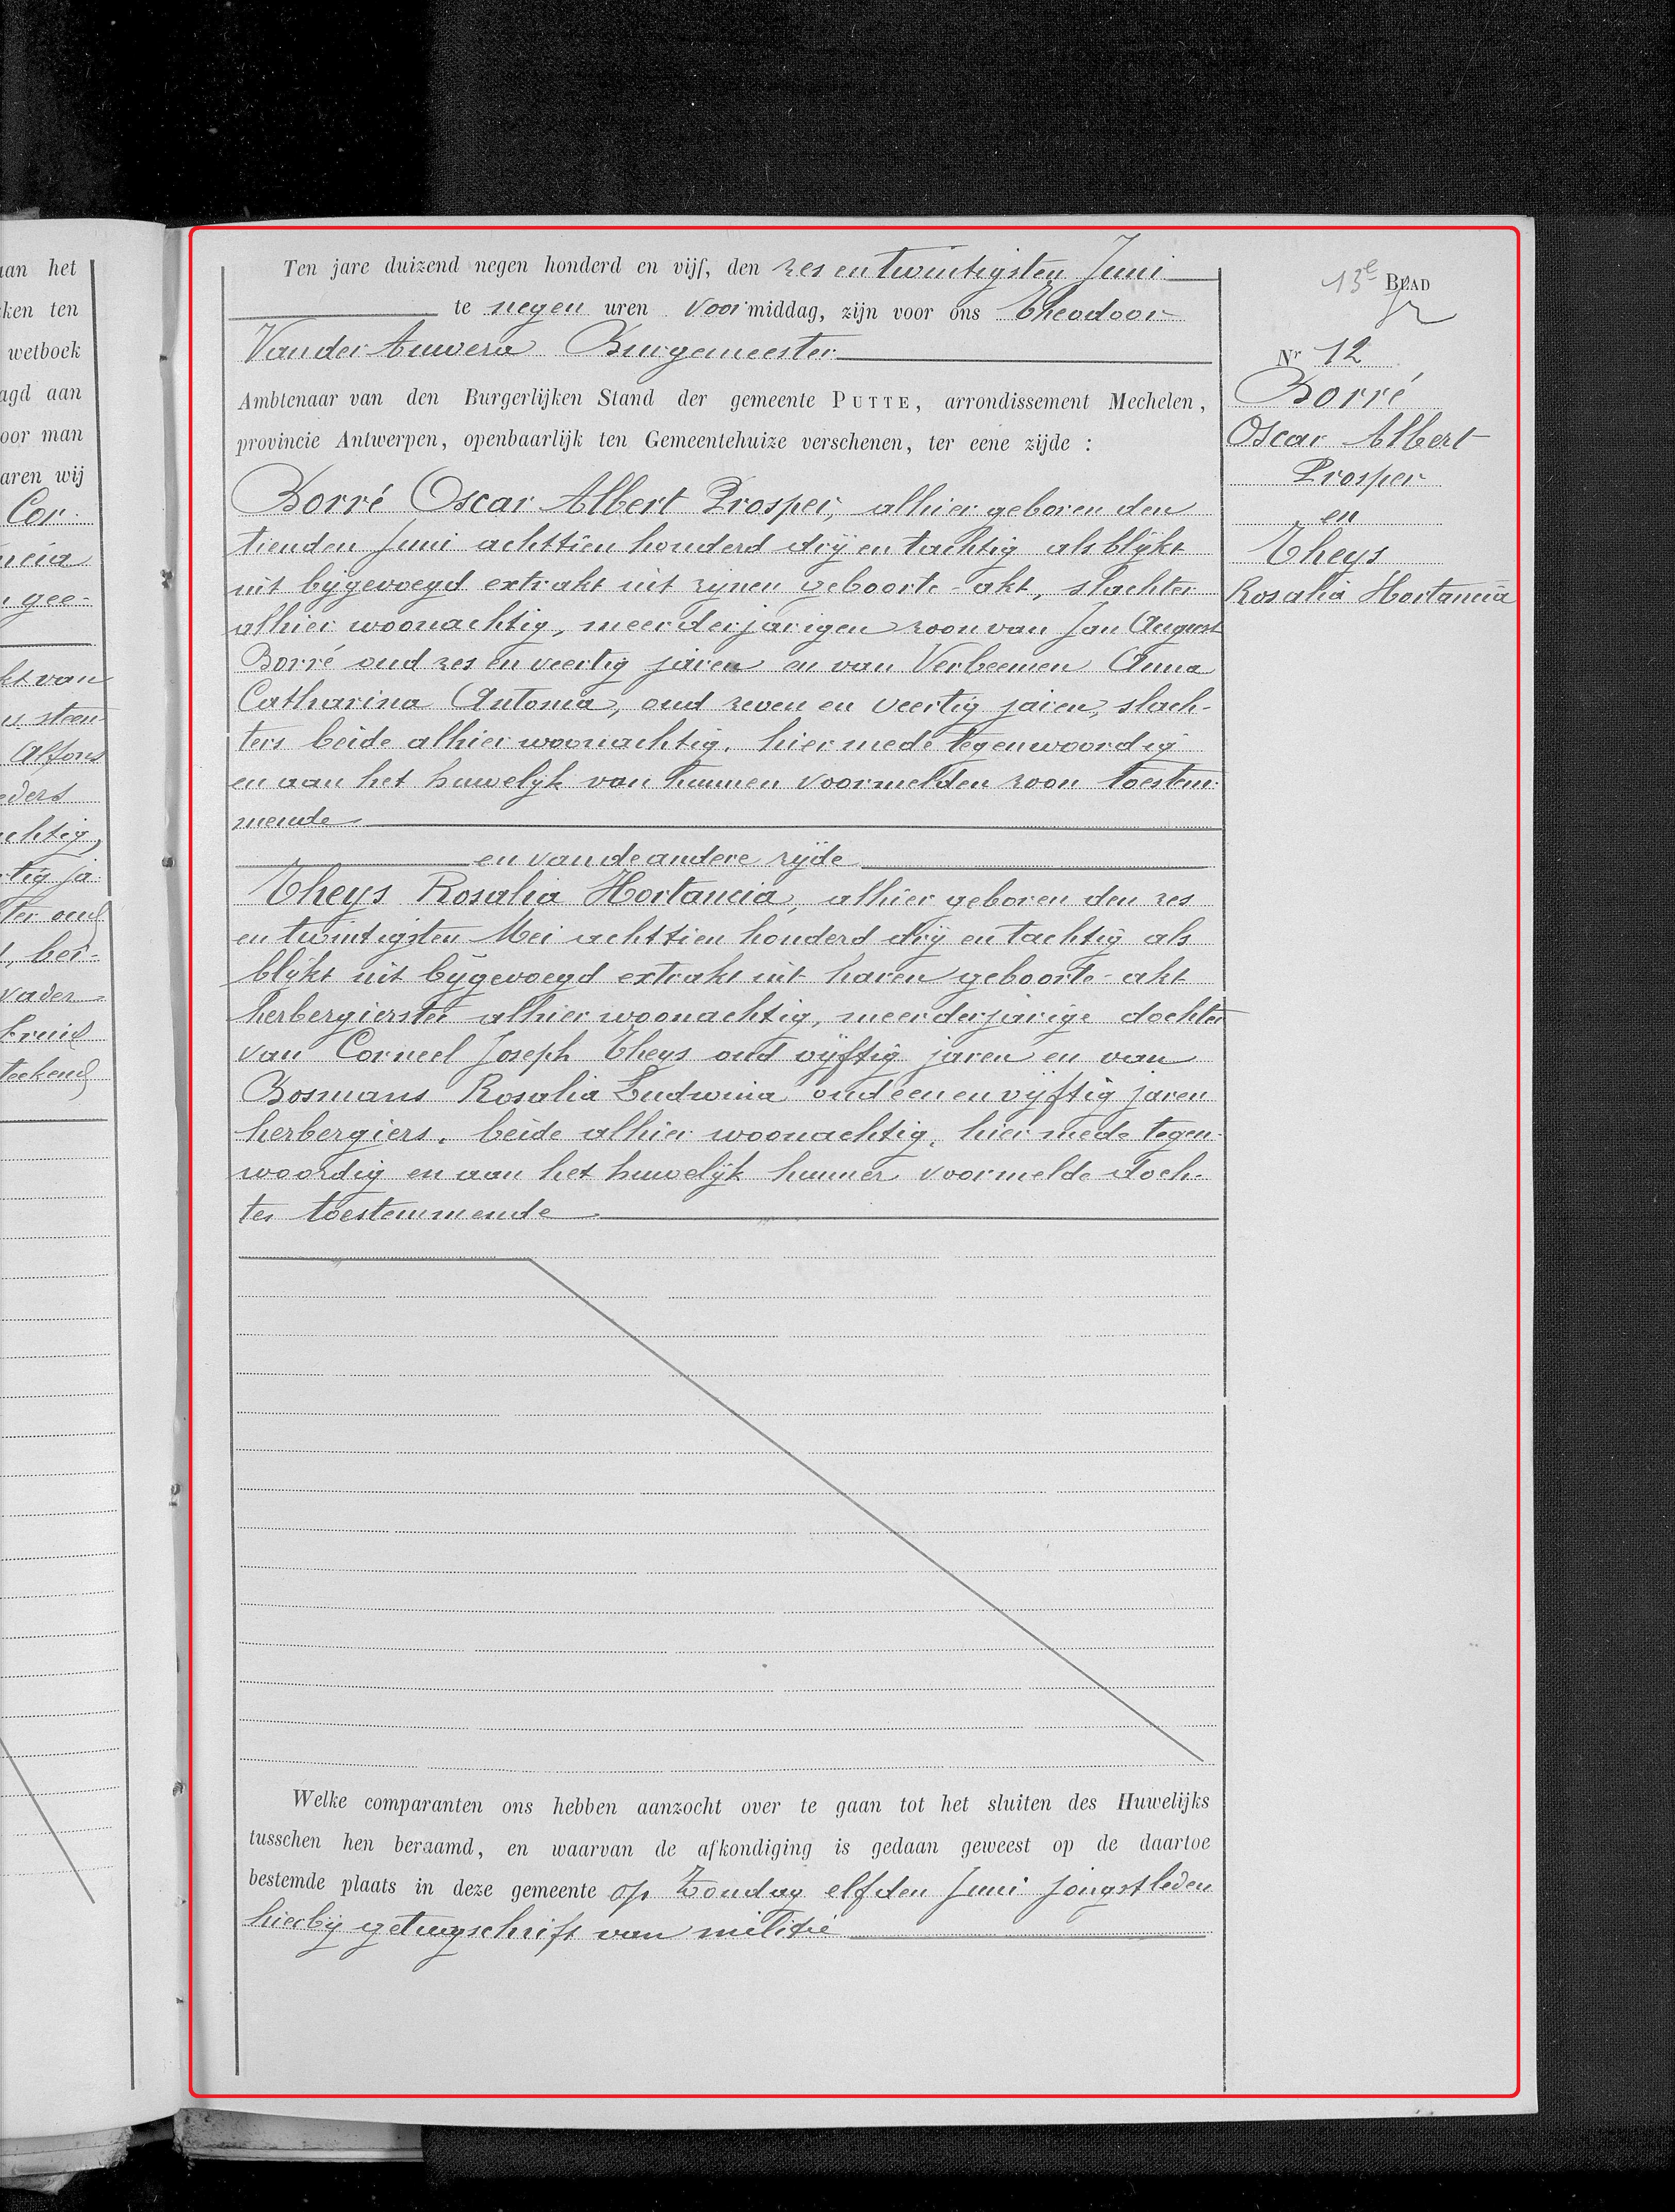 aan het
ken ten
wetboek
agd aan
oor man
aren wij
Cor-
ncia
gee-
kt van
steen-
Alfons
eders
achtig,
tig ja-
ter oud
bei-
vader
bruid
teekend
Ten jare duizend negen honderd en vijf, den zes en twintigsten Juni
te negen uren voormiddag, zijn voor ons Theodoor
Van der Auwera Burgemeester
Ambtenaar van den Burgerlijken Stand der gemeente PUTTE, arrondissement Mechelen,
provincie Antwerpen, openbaarlijk ten Gemeentehuize verschenen, ter eene zijde :
Borré Oscar Albert Prosper, alhier geboren den
tienden Juni achttien honderd drij en tachtig als blijkt
uit bijgevoegd extrakt uit zijnen geboorte-akt, slachter
alhier woonachtig, meerderjarigen zoon van Jan August
Borré oud zes en veertig jaren en van Verbeemen Anna
Catharina Antonia, oud zeven en veertig jaren, slach-
ters beide alhier woonachtig, hier mede tegenwoordig
en aan het huwelijk van hunnen voormelden zoon toestem-
mende
en van de andere zijde
Theys Rosalia Hortancia, alhier geboren den zes
en twintigsten Mei achttien honderd drij en tachtig als
blijkt uit bijgevoegd extrakt uit haren geboorte-akt
herbergierster alhier woonachtig, meerderjarige dochter
van Corneel Joseph Theys oud vijftig jaren en van
Bosmans Rosalia Ludwina oud een en vijftig jaren
herbergiers, beide alhier woonachtig, hier mede tegen-
woordig en aan het huwelijk hunner voormelde doch-
ter toestemmende
Welke comparanten ons hebben aanzocht over te gaan tot het sluiten des Huwelijks
tusschen hen beraamd, en waarvan de afkondiging is gedaan geweest op de daartoe
bestemde plaats in deze gemeente op Zondag elfden Juni jongstleden
hierbij getuigschrift van militie
13e BLAD
Nr 12
Borré
Oscar Albert
Prosper
en
Theys
Rosalia Hortancia